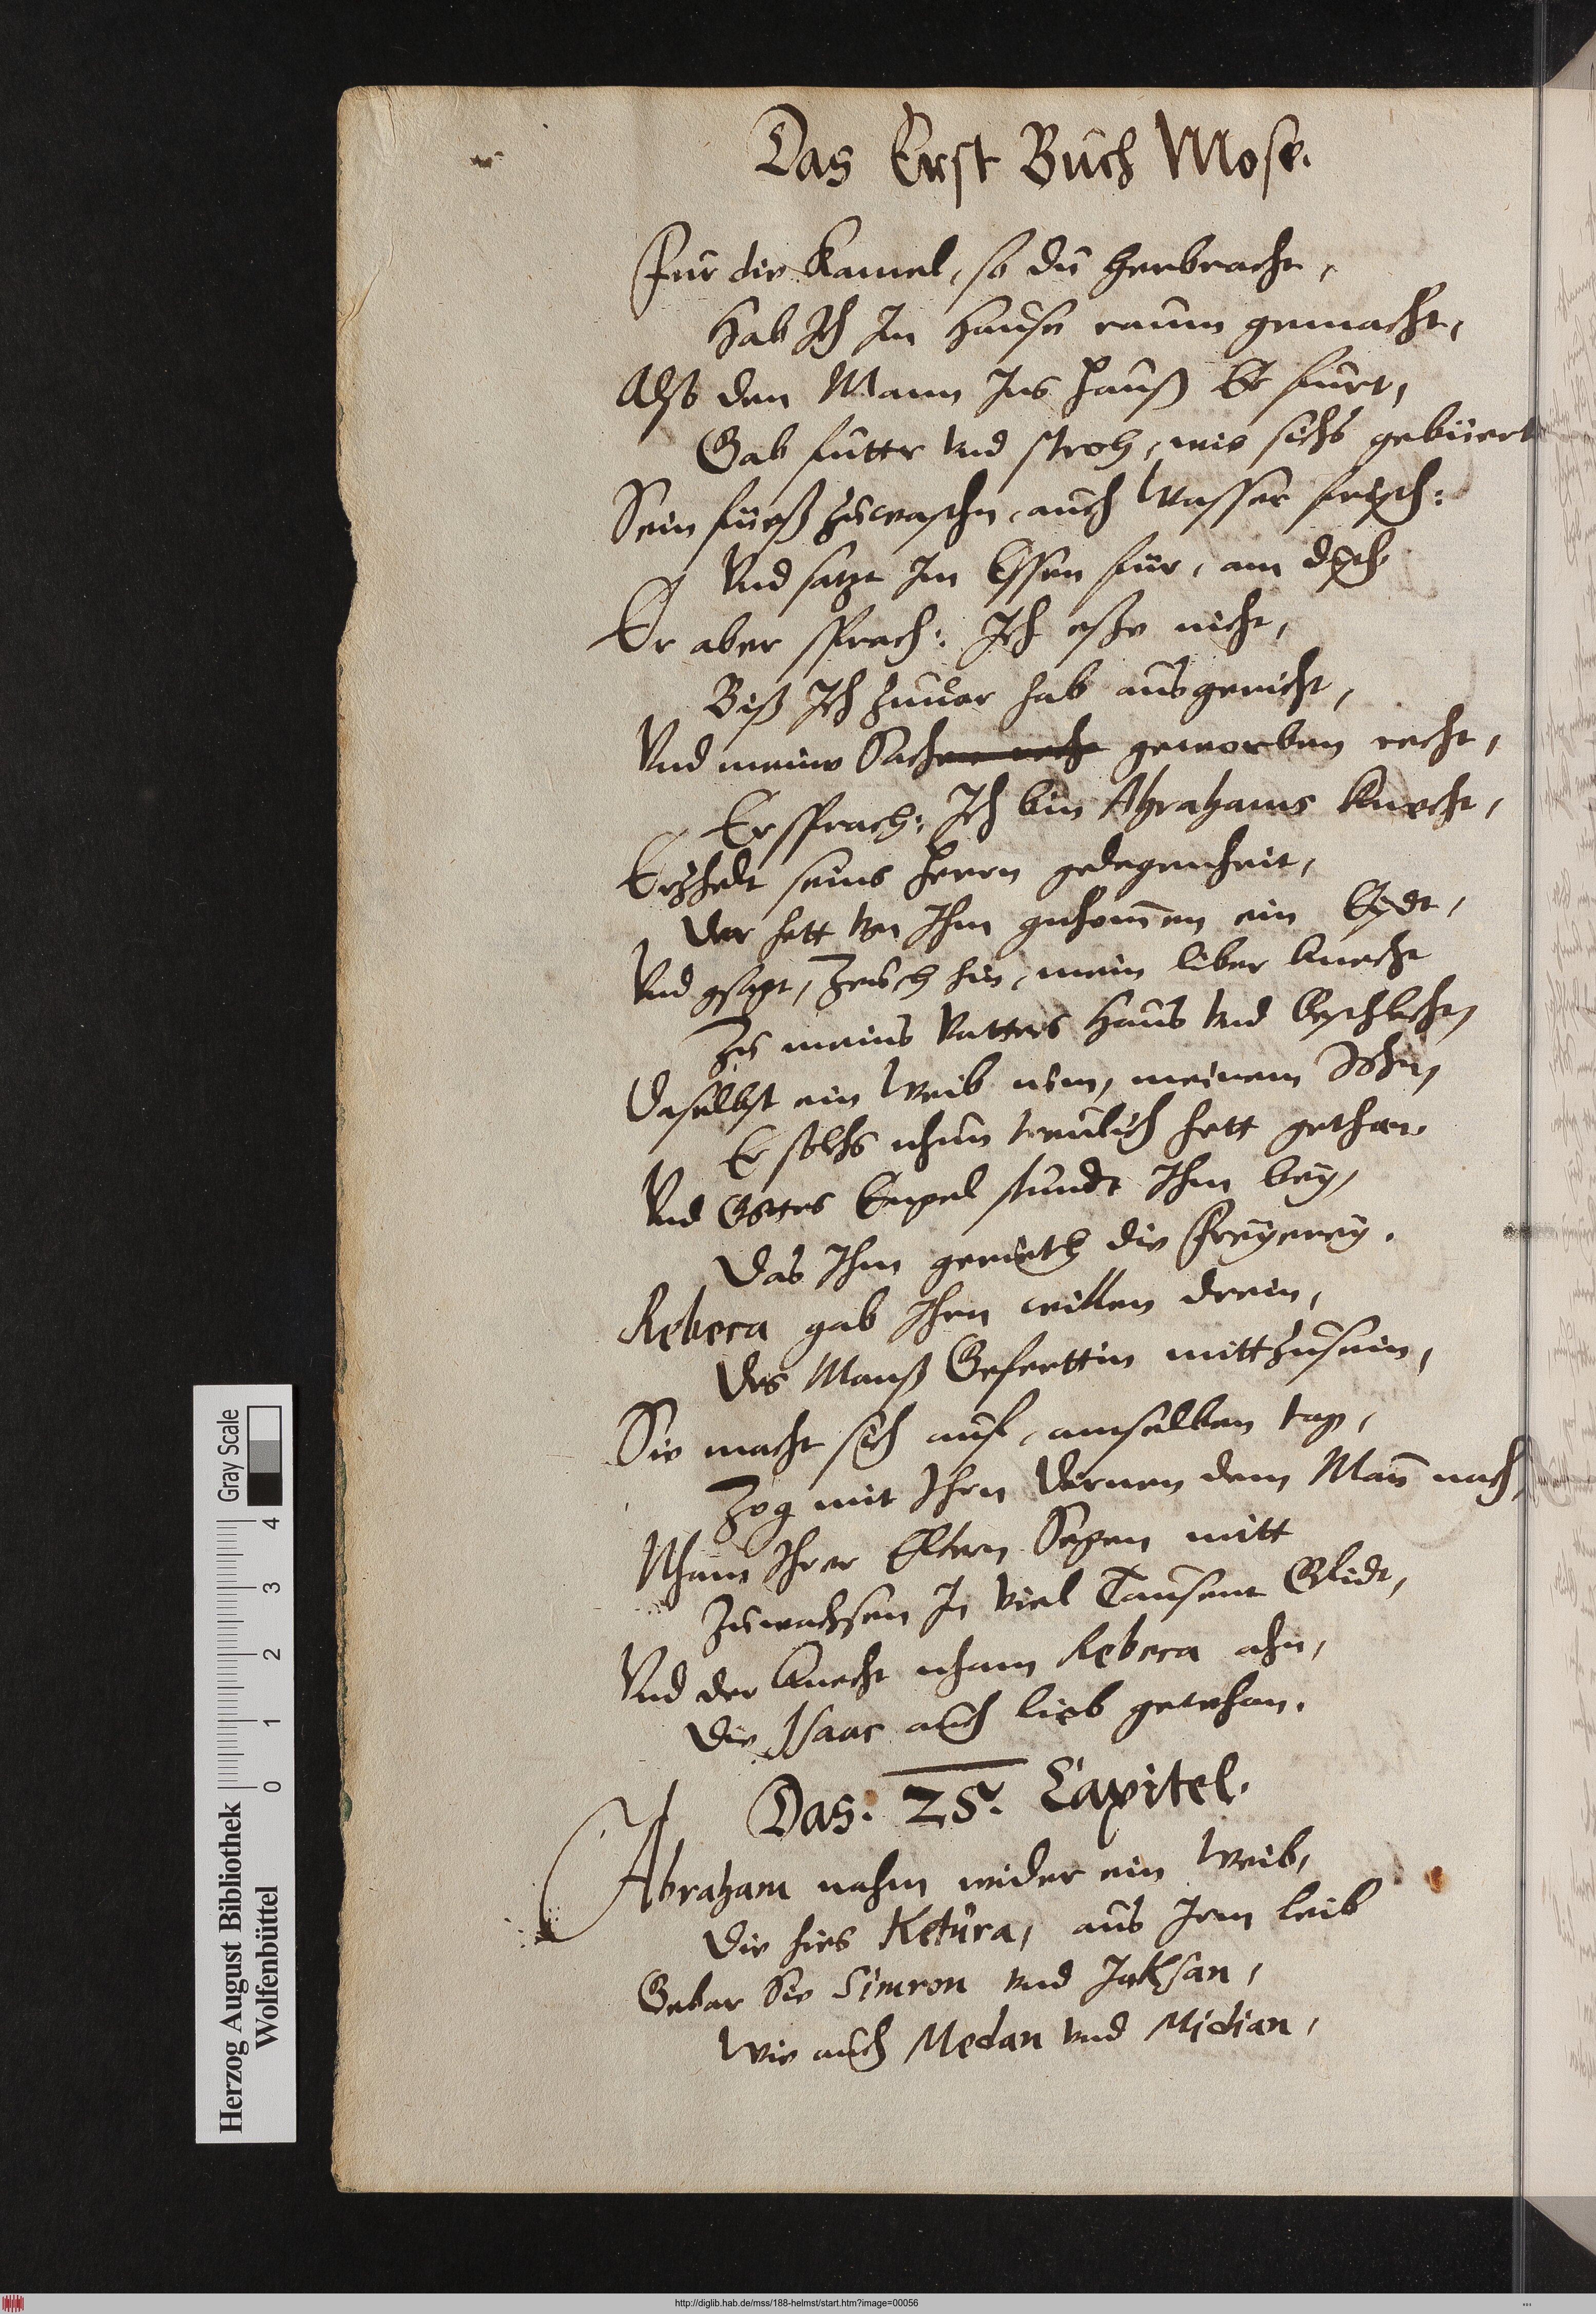 Das Erst Buch Mose.
Fur die Kamel, so du herbracht,
Hab Ich Im Hause raum gemacht,
Also den Mann Ins Hauß Er furt,
Gab futtr Vnd stroh, wie sichs gebüert
Sein füeß zuwaschn, auch Wasser frisch:
Vnd satzt Im Essen für, am disch
Er aber sprach: Ich eße nicht,
Biß Ich zuuor hab ausgericht,
Vnd meine Sach geworben recht,
Er sprach: Ich bin Abrahams Knecht,
Erzhelt seins Herrn gelegenheit,
Der hett Von Ihm gnhommen ein Eydt,
Vnd gsagt, Zeuch hin, mein liber Knecht
Zu meins Vatters Haus Vnd Gschlecht,
Daselbst ein Weib nim, meinem Sohn,
Er solchs nhun treulich hett gethan
Vnd Gottes Engel stundt Ihm bey,
Das Ihm gerieth die Freyerey.
Rebeca gab Ihrn willen drein,
Des Manß Geferttin mittzusein,
Sie macht sich auf, amselben tag,
Zog mit Ihrn Dirnen dem Man nach,
Nham Ihrer Eltern Segen mitt
Zuwachsen In Viel Tausent Glidt,
Vnd der Knecht nham Rebeca ahn,
Die Isaac auch lieb gewhan.
Das. 25. Capitel.
Abraham nahm wider ein Weib,
Die hies Ketura, aus Irm leib
Gebar Sie Simron vnd Jaksan,
Wie auch Medan vnd Midian,
Herzog August Bibliothek
Wolfenbüttel
0 1 2 3 4
Gray Scale
http://diglib.hab.de/mss/188-helmst/start.htm?image=00056